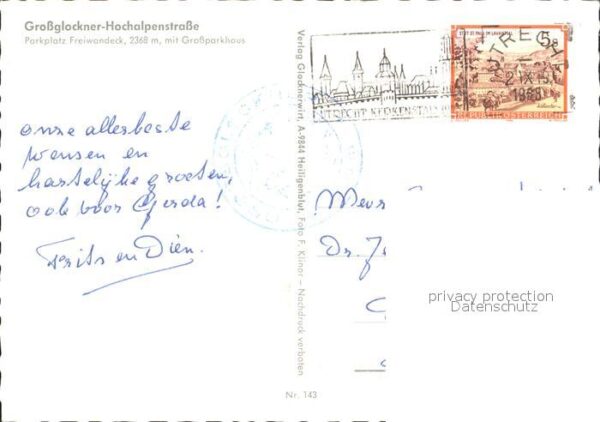 Großglockner-Hochalpenstraße
Parkplatz Freiwandeck, 2368 m, mit Großparkhaus
onze allerbeste
wensen en
hartelijke groeten,
ook voor Gerda!
Frits en Dien.
Verlag Glocknerwirt, A-9844 Heiligenblut, Foto F. Klinar - Nachdruck verboten
Nr. 143
UTRECHT KERKENSTAD
UTRECHT
1988
STIFT ST. PAUL IM LAVANTTAL
5 S
REPUBLIK ÖSTERREICH
Mevr
Dr.
privacy protection
Datenschutz